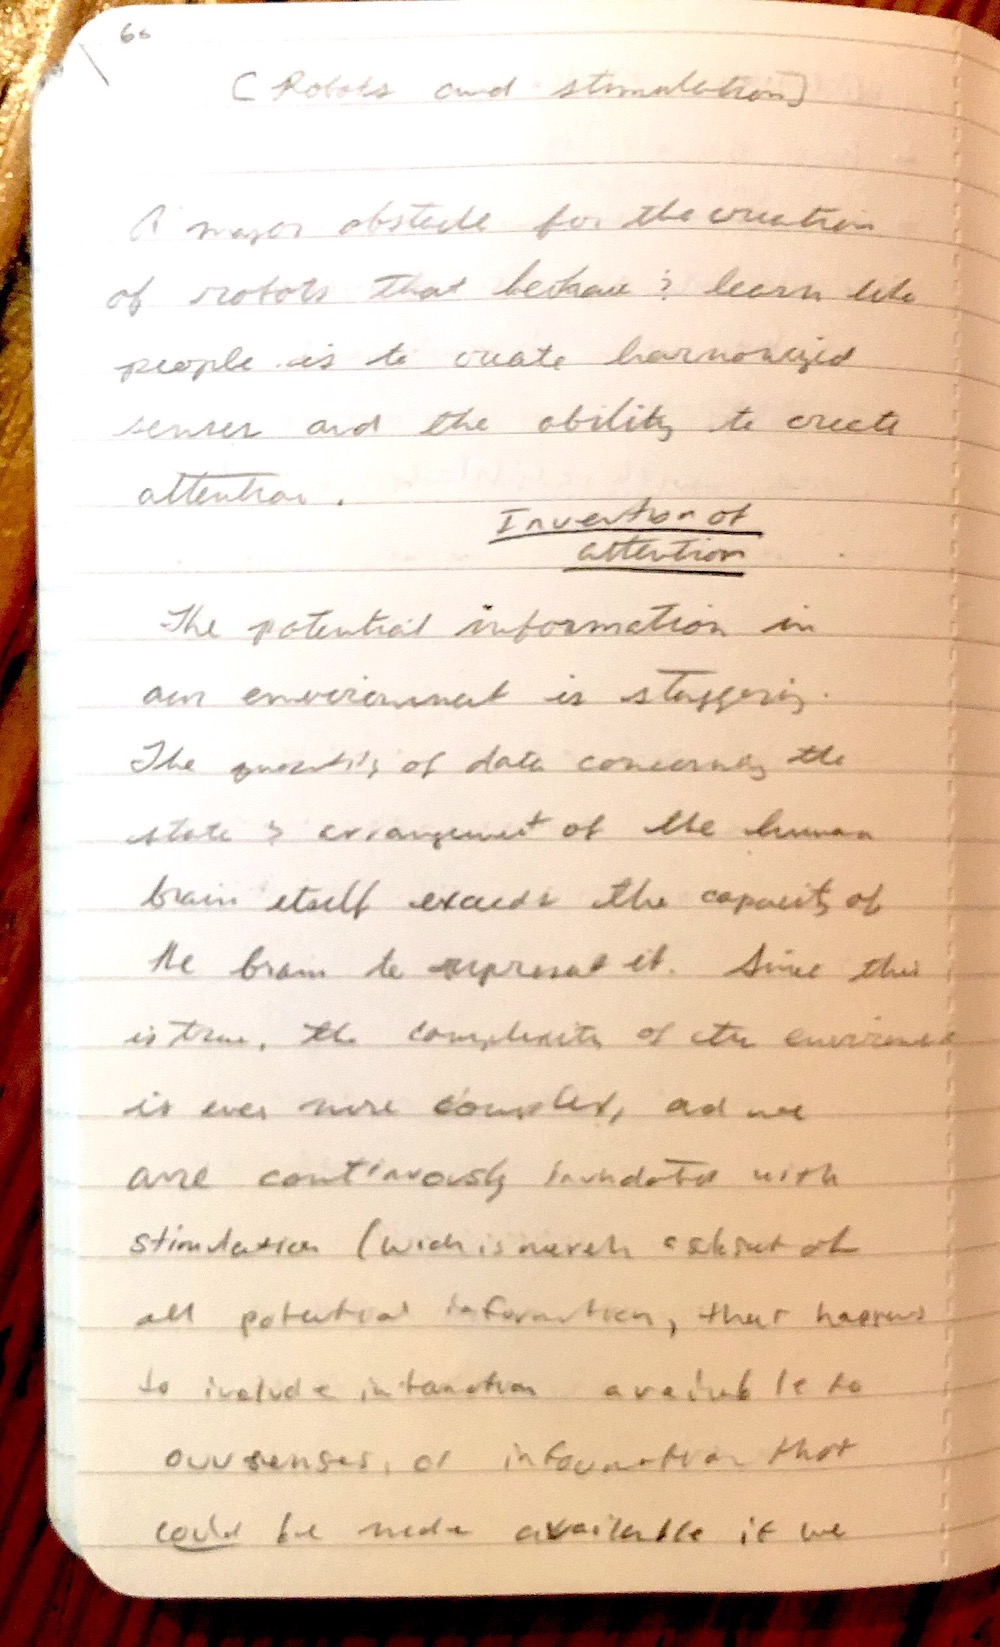 60
[Robots and stimulation]
A major obstacle for the creation
of robots that behave & learn like
people is to create harmonized
senses and the ability to create
attention.
Invention of
attention
The potential information in
our environment is staggering.
The quantity of data concerning the
state & arrangement of the human
brain itself exceeds the capacity of
the brain to represent it. Since this
is true, the complexity of the environment
is ever more complex, and we
are continuously inundated with
stimulation (wich is merely a subset of
all potential information, that happens
to include information available to
our senses, or information that
could be made available if we